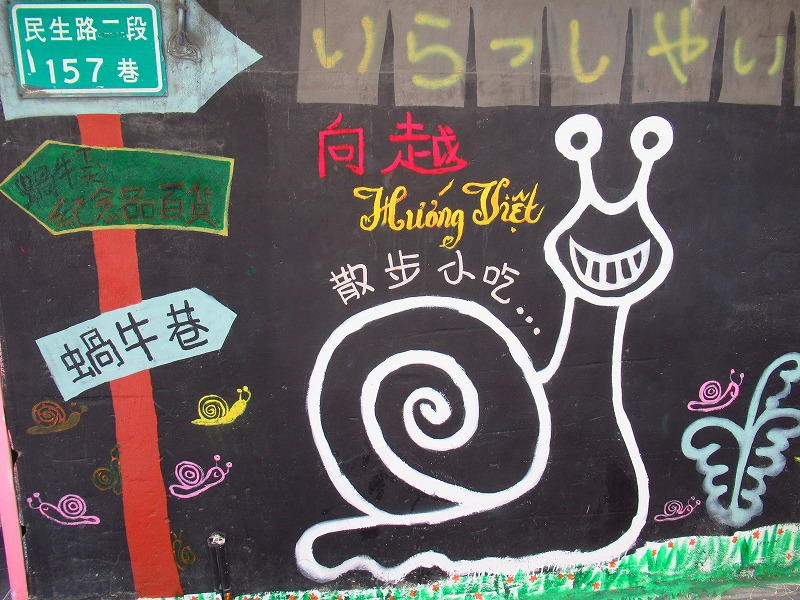 民生路二段
157 巷
いらっしやい
向越
Hướng Việt
蝸牛
紀念品百貨
散步小吃...
蝸牛巷